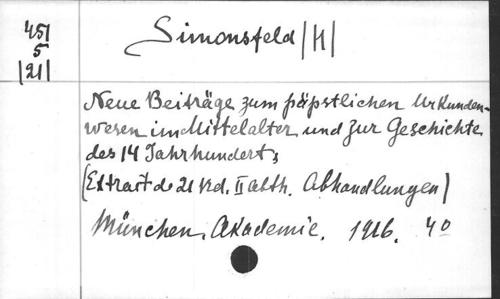 451
5
|21|
Simonsfeld |H|
Neue Beiträge zum päpstlichen Urkunden-
wesen im Mittelalter und zur Geschichte
des 14 Jahrhunderts
(Extrait de 21 Bd. II abth. Abhandlungen)
München, Akademie. 1916. 4o